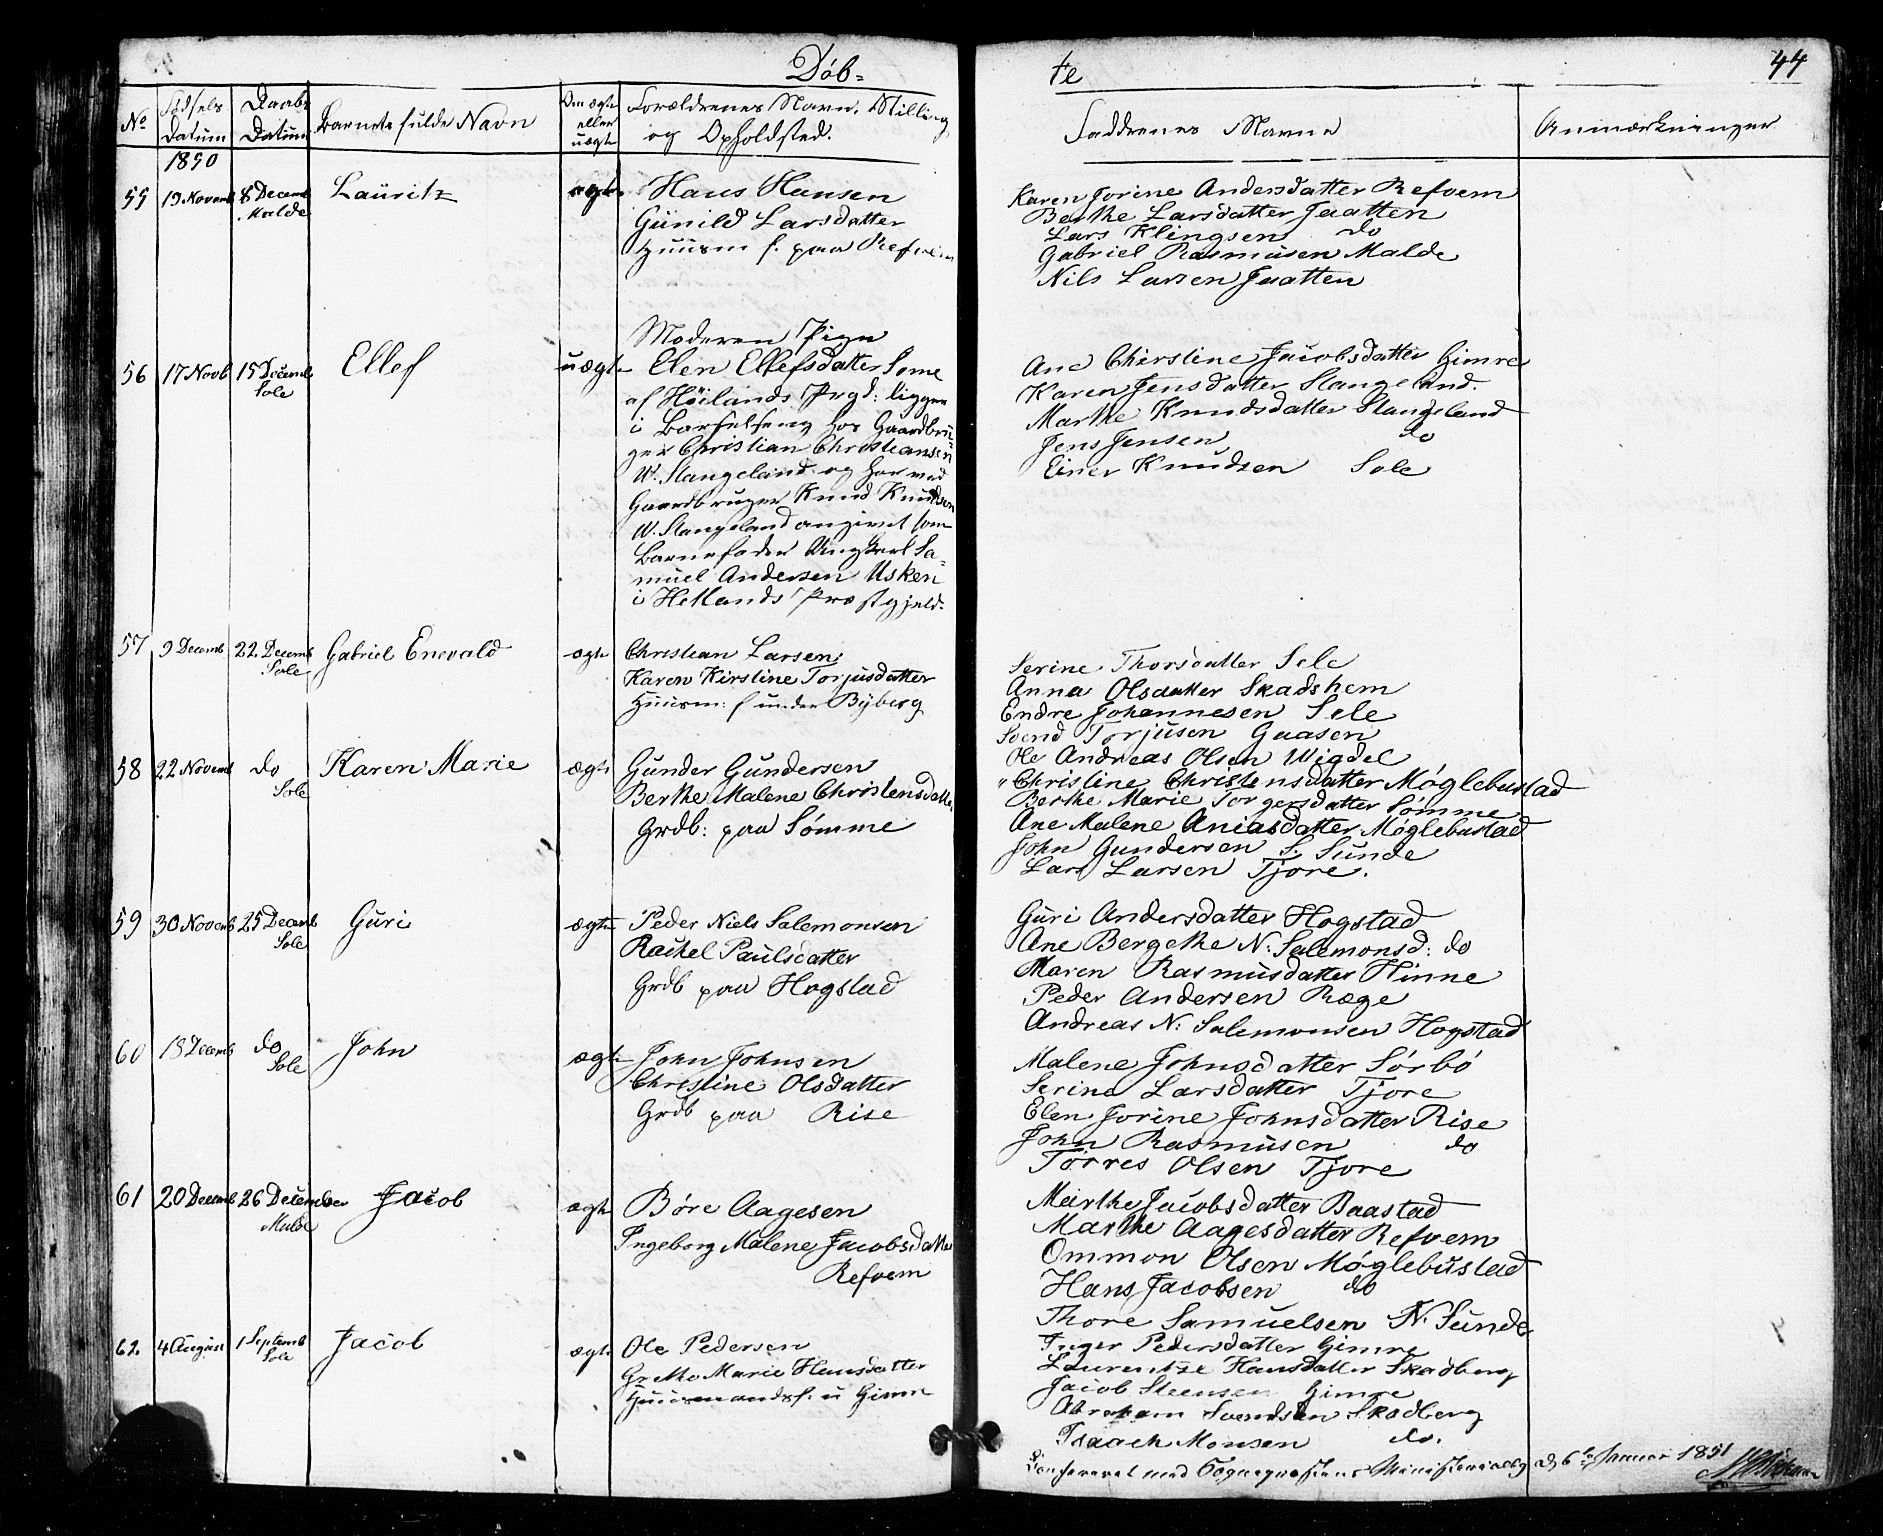 Döb=
te
44
No
Fødsels Datum
Daabs Datum
Barnets fulde Navn
Om ægte eller uægte
Forældrenes Navn, Stilling og Opholdsted.
Faddrenes Navne
Anmærkninger
1850
55 19 Novemb 8 Decemb Malde Lauritz ægte
Hans Hansen
Gunild Larsdatter
Huusm f. paa Refvem
Karen Jorine Andersdatter Refvem
Berthe Larsdatter Jaatten
Lars Klingsen do
Gabriel Rasmusen Malde
Nils Larsen Jaatten
56 17 Novb 15 Decemb Sole Ellef uægte
Moderen Pige
Elen Ellefsdatter Some
af Höilands Prgd: ligger
i Barselseng hos Gaardbru-
ger Christian Christiansen
W. Stangeland og har ved
Gaardbruger Knud Knudsen
W. Stangeland angivet som
Barnefader Ungkarl Sa-
muel Andersen Usken
i Hetlands Præstgjeld.
Ane Christine Jacobsdatter Gimre
Karen Jensdatter Stangeland.
Marthe Knudsdatter Stangeland
Jens Jensen do
Einer Knudsen Sole
57 9 Decemb 22. Decemb Sole Gabriel Enevald ægte
Christian Larsen
Karen Kirstine Torjusdatter
Huusm: f under Byberg
Serine Thorsdatter Sele
Anna Olsdatter Skadshem
Endre Johannesen Sele
Svend Torjusen Gaasen
Ole Andreas Olsen Wigdel
58 22 Novemb do Sole Karen Marie ægte
Gunder Gundersen
Berthe Malene Christensdatter
Grdb: paa Sømme
Christine Christensdatter Møglebustad
Berthe Marie Torgersdatter Sømme
Ane Malene Aniasdatter Møglebustad
John Gundersen S. Sunde
Lars Larsen Tjore.
59 30 Novemb 25 Decemb Sole Guri ægte
Peder Niels Salemonsen
Rachel Paulsdatter
Grdb paa Hogstad
Guri Andersdatter Hogstad
Ane Bergethe N: Salemonsd: do
Maren Rasmusdatter Hinne
Peder Andersen Ræge
Andreas N: Salemonsen Hogstad
60 18 Decemb do Sole John ægte
John Johnsen
Christine Olsdatter
Grdb paa Rise
Malene Johnsdatter Sørbö
Serine Larsdatter Tjore
Elen Jorine Johnsdatter Rise
John Rasmusen do
Törres Olsen Tjore
61 20 Decemb 26 December Malde Jacob ægte
Böre Aagesen
Ingeborg Malene Jacobsdatter
Refvem
Marthe Jacobsdatter Baastad
Marthe Aagesdatter Refvem
Ommon Olsen Møglebustad
Hans Jacobsen do
Thore Samuelsen N. Sunde
62. 4 August 1 Septemb Sole Jacob ægte
Ole Pedersen
Grethe Marie Hansdatter
Huusmandsf. u Gimre
Inger Pedersdatter Gimre
Laurentze Hansdatter Skadberg
Jacob Steensen Gimre
Abraham Svendsen Skadberg
Isaach Monsen do.
Confereret med Sognepræstens Ministerialbog d. 6te Januar 1851